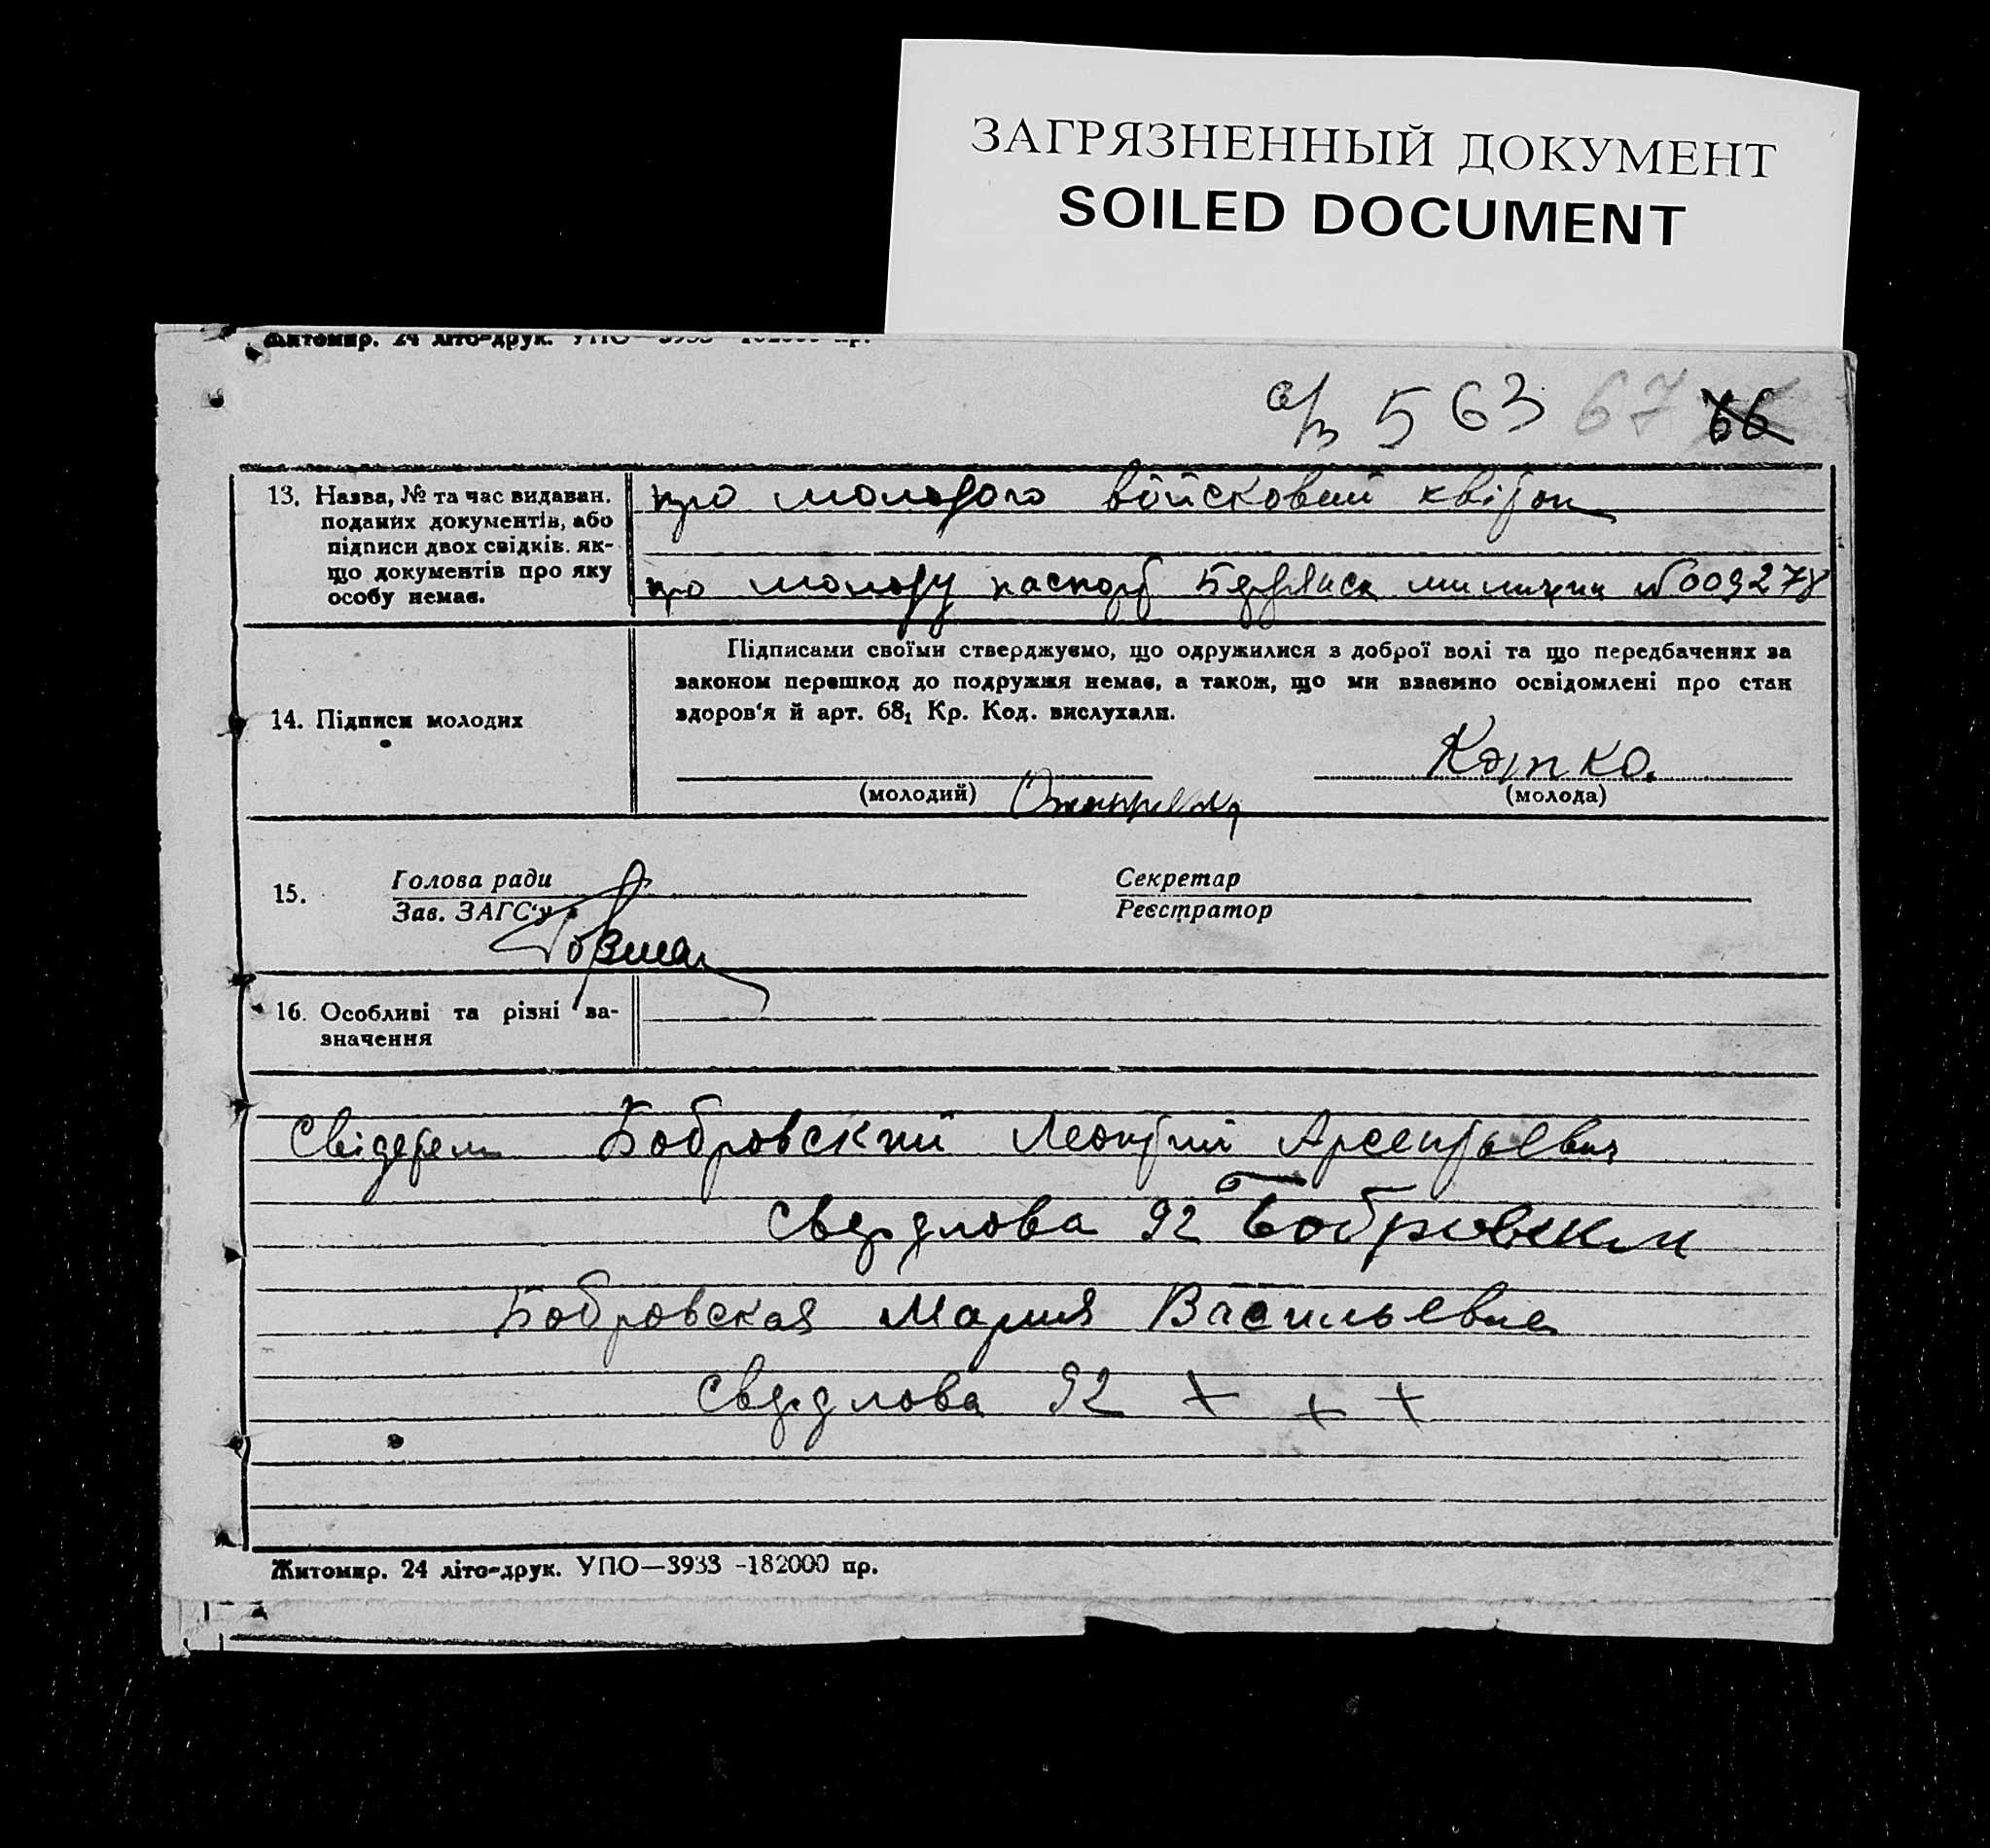 ЗАГРЯЗНЕННЫЙ ДОКУМЕНТ
SOILED DOCUMENT
Житомир. 24 літо-друк. УПО—3933 -182000 пр.
а/з 563 67 66
13. Назва, № та час видаван. поданих документів, або підписи двох свідків. як-
що документів про яку
особу немає.
про молодого військовий квіток
про молоду паспорт Бердянск милиции №009278
14. Підписи молодих
Підписами своїми стверджуємо, що одружилися з доброї волі та що передбачених за
законом перешкод до подружжя немає, а також, що ми взаємно освідомлені про стан
здоров'я й арт. 68₁ Кр. Код. вислухали.
(молодий)
(молода)
15.
Голова ради
Зав. ЗАГС'у
Секретар
Реєстратор
16. Особливі та різні за-
значення
Свідетели Бобровский Леонтий Арсентьевич
Свердлова 92 Бобровский
Бобровская Мария Васильевна
Свердлова 92 + + +
Житомир. 24 літо-друк. УПО—3933 -182000 пр.